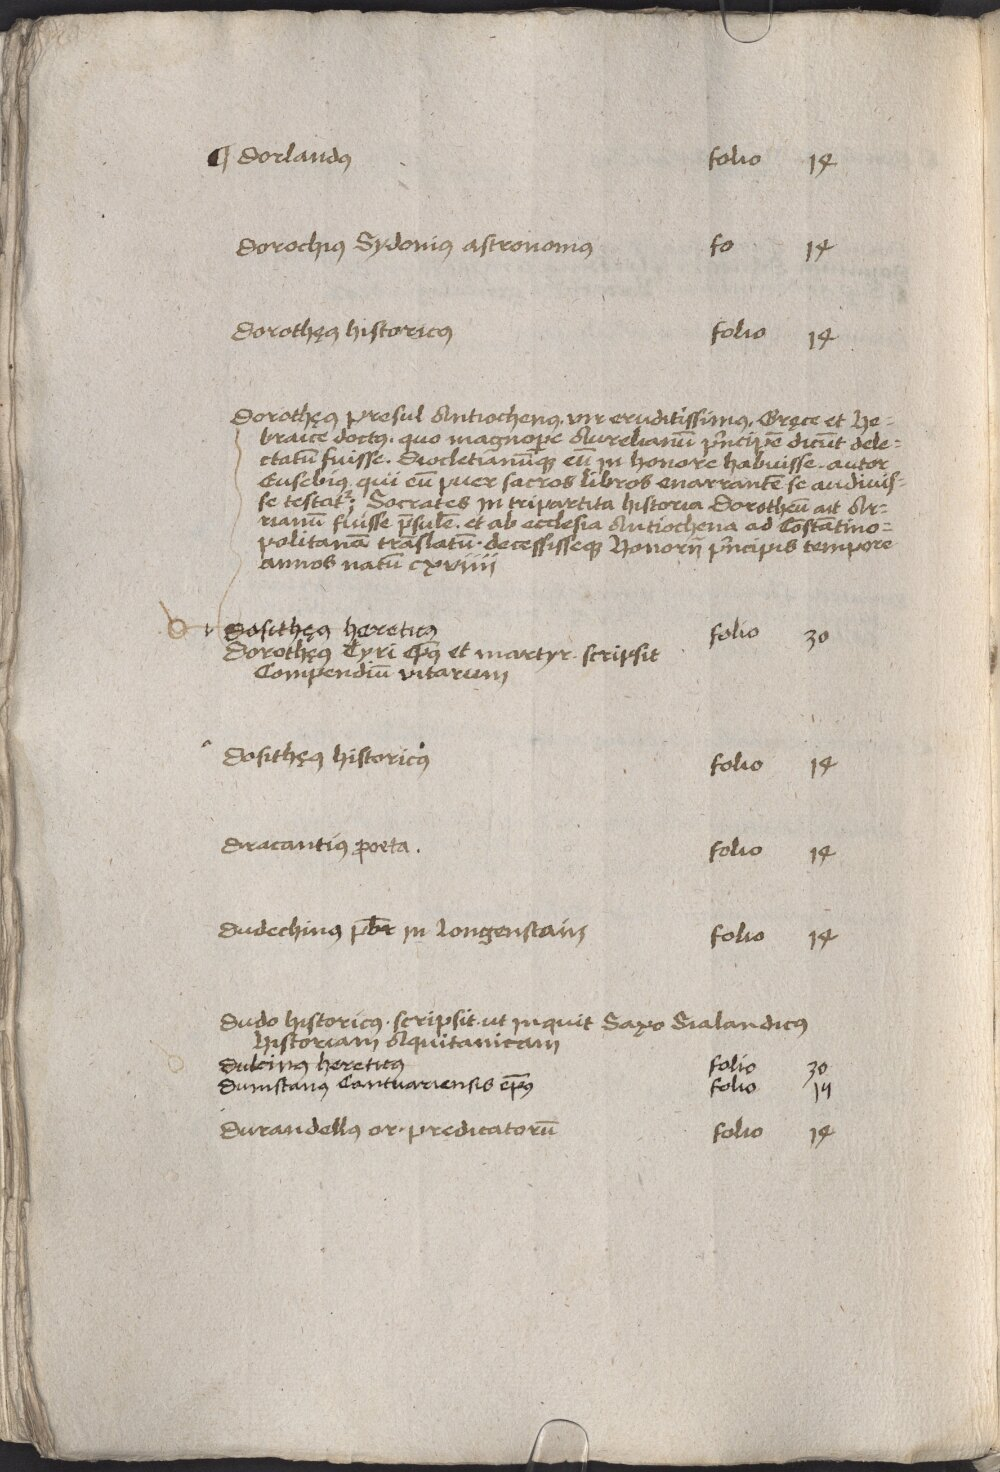 ¶ Dorlandꝰ folio 14
Dorochiꝰ Sydoniꝰ astronomꝰ fo 14
Dorothęꝰ historicꝰ folio 14
Dorothęꝰ presul Antiochenꝰ. vir eruditissimꝰ. Gręce et he=
braice doctꝰ. quo magnoꝑe Aurelianū prīcipē dicūt dele=
ctatū fuisse. Diocletianūqꝫ eū in honore habuisse. autor
Eusebiꝰ. qui eū puer sacros libros enarrantē se audiuis=
se testatꝛ; Socrates in tripartita historia Dorotheū ait Ar=
rianū fuisse p̄sulē. et ab ecclesia Antiochena ad Costātino=
politanā trāslatū. decessisseqꝫ Honorij prīcipis tempore
annos natū cxviiii
Dosithęꝰ hereticꝰ folio 30
Dorothęꝰ Tyri ep̄ꝰ et martyr. scripsit
Compendiū vitarum
Dosithęꝰ historicꝰ folio 14
Dracantiꝰ poeta. folio 14
Dudechinꝰ pb̄r in Longenstain folio 14
Dudo historicꝰ. scripsit. ut inquit Saxo Sialandicꝰ
historiam Aquitanicam
Dulcinꝰ hereticꝰ folio 30
Dunstanꝰ Cantuariensis ep̄ꝰ folio 14
Durandellꝰ or. predicatorū folio 14